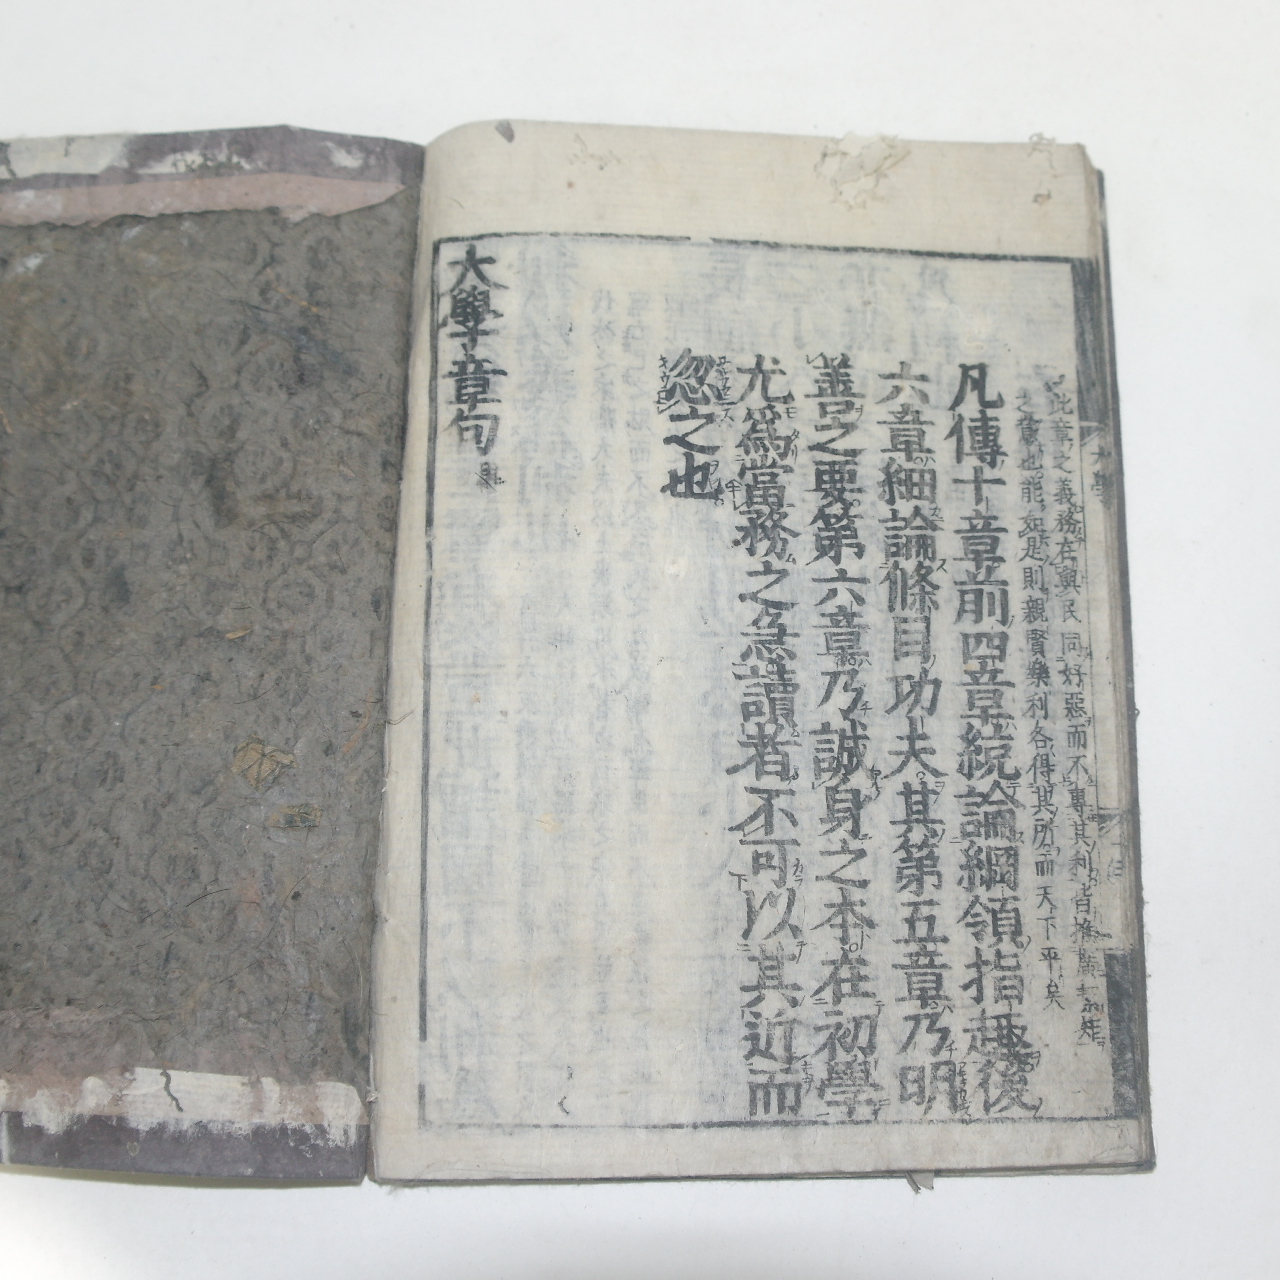 此章之義務在與民同好惡而不專其利皆推廣絜矩
之意也能如是則親賢樂利各得其所而天下平矣
凡傳十章前四章統論綱領指趣後
六章細論條目功夫其第五章乃明
善之要第六章乃誠身之本在初學
尤爲當務之急讀者不可以其近而
忽之也
大學章句